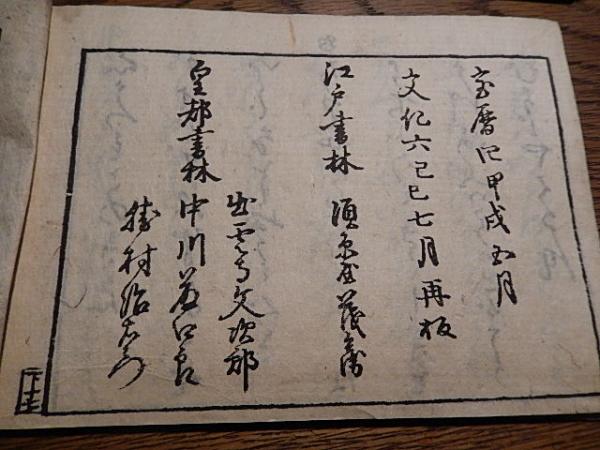 宝暦四甲戌五月
文化六己巳七月再板
江戸書林 須原屋茂兵衛
出雲寺文次郎
皇都書林 中川藤四郎
勝村治右衛門